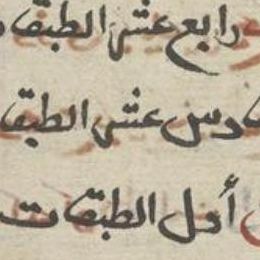 رابع عشر الطبقا
دس عشر الطبقا
أول الطبقات